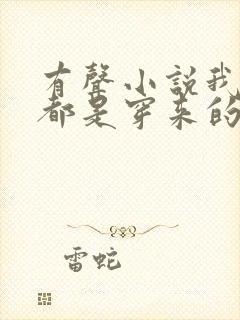 有聲小説我
都是穿来的
雷蛇